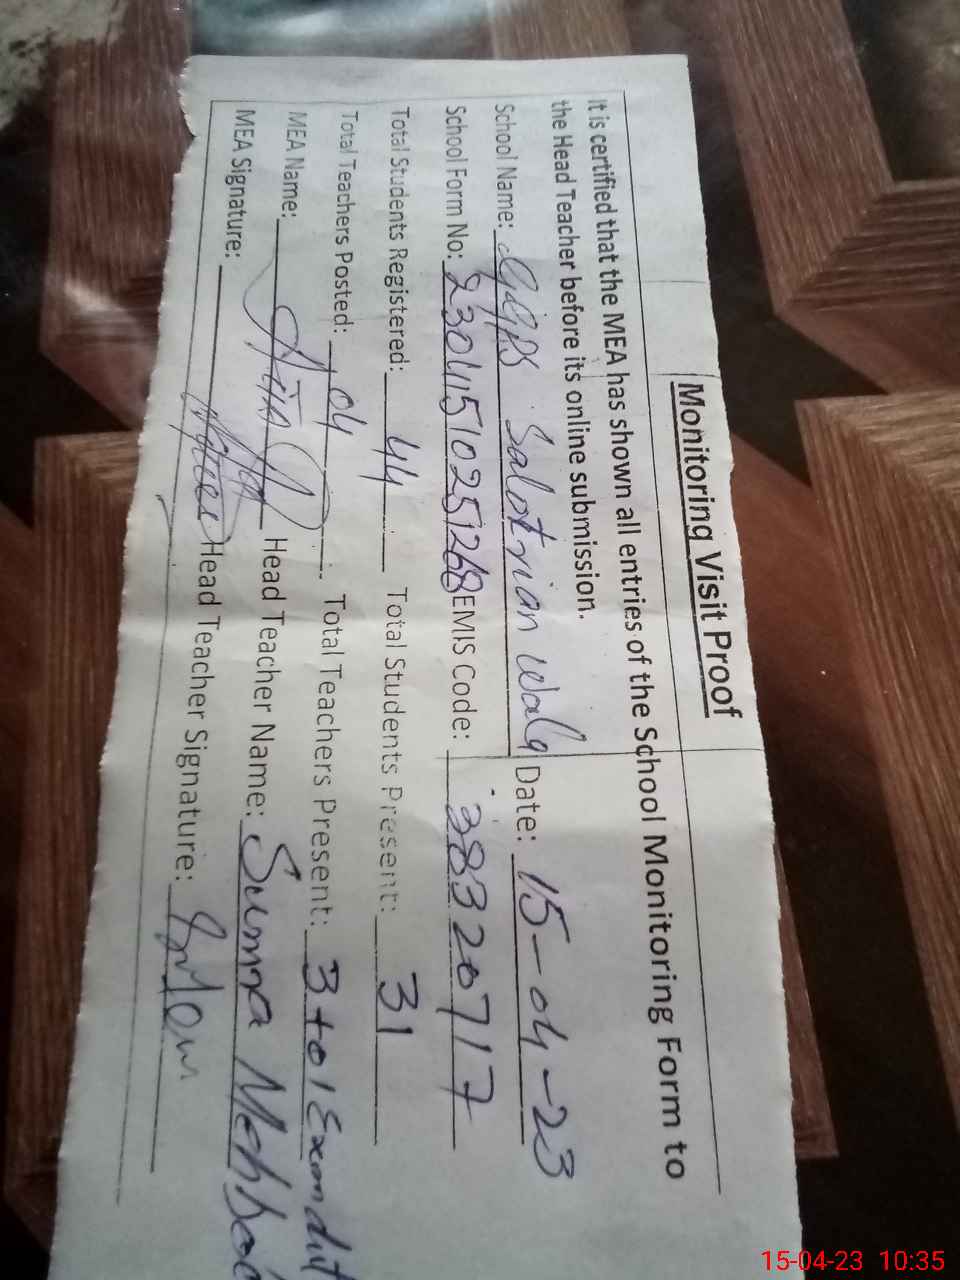 Monitoring Visit Proof
It is certified that the MEA has shown all entries of the School Monitoring Form to
the Head Teacher before its online submission.
School Name: GGPS Salotrian wala Date: 15-04-23
School Form No: 23041510251268 EMIS Code: 38320717
Total Students Registered: 44 Total Students Present: 31
Total Teachers Posted: 04 Total Teachers Present: 3+01 Exam duty
MEA Name: Head Teacher Name: Saima
MEA Signature: Head Teacher Signature:
15-04-23 10:35